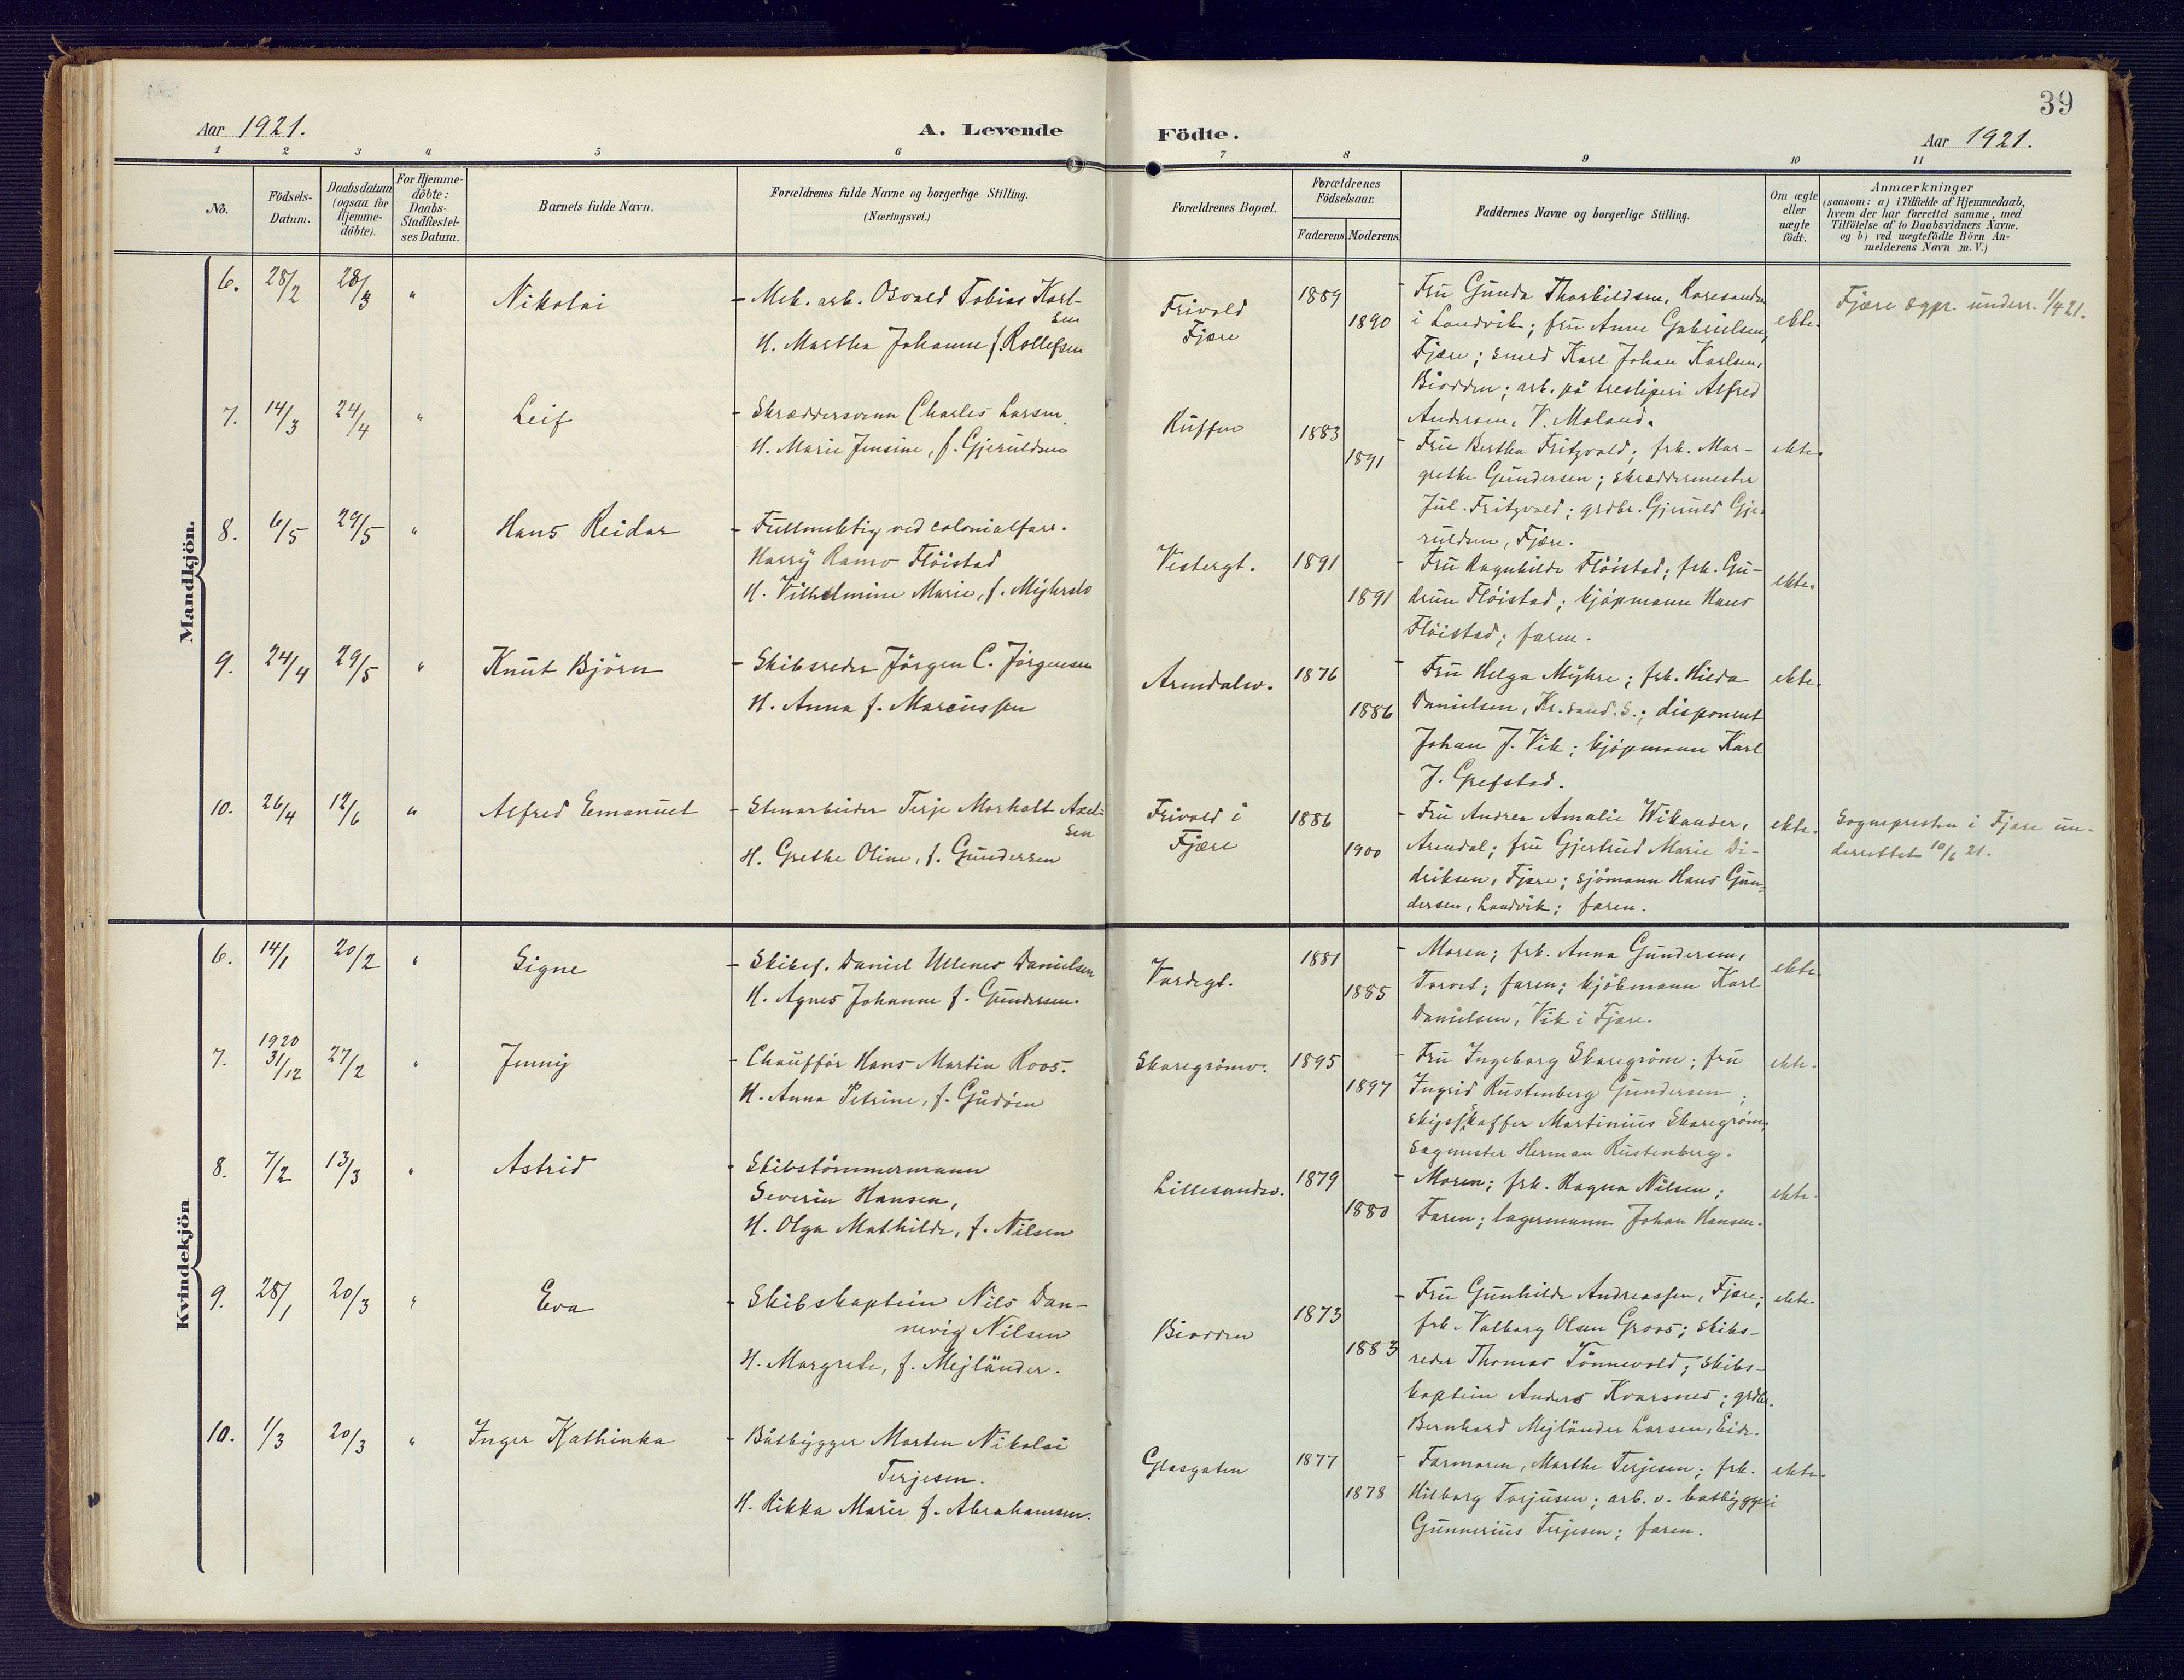 39
Aar 1921.
A. Levende Födte.
Aar 1921.
1 2 3 4 5 6 7 8 9 10 11
No.
Födsels-Datum.
Daabsdatum (ogsaa for Hjemme-döbte).
For Hjemme-döbte: Daabs-Stadfæstel-ses Datum.
Barnets fulde Navn.
Forældrenes fulde Navne og borgerlige Stilling.
(Næringsvei.)
Forældrenes Bopæl.
Forældrenes Födselsaar.
Faderens Moderens
Faddernes Navne og borgerlige Stilling.
Om ægte eller uægte födt.
Anmærkninger
(saasom: a) i Tilfælde af Hjemmedaab,
hvem der har forrettet samme, med
Tilföielse af to Daabsvidners Navne,
og b) ved uægtefödte Börn An-
melderens Navn m. V.)
Mandkjön.
6. 28/2 28/3 " Nikolai
- Mek. arb. Osvald Tobias Karl-
sen
H. Martha Johanne f. Rollefsen
Frivold
Fjære
1889
1890
- Fru Gunda Thorkildsen, Roresanden
i Landvik; fru Anne Gabrielsen,
Fjære; smed Karl Johan Karlsen,
Biodden; arb. på tresliperi Alfred
Andersen, V. Moland.
ekte.
Fjære sgpr. underr. 1/4 21.
7. 14/3 24/4 " Leif
- Skræddersvenn Charles Larsen.
H. Marie Jensine, f. Gjeruldsen
Kuffen
1883
1891
- Fru Bertha Fritzvold; frk. Mar-
grethe Gundersen; skræddermester
Jul. Fritzvold; grdbr. Gjeruld Gje-
ruldsen, Fjære.
ekte.
8. 6/5 29/5 " Hans Reidar
- Fullmektig ved colonialforr.
Harry Ramo Flöistad
H. Vilhelmine Marie, f. Myhrslo
Vestergt.
1891
1891
- Fru Ragnhilde Flöistad; frk. Gu-
drun Flöistad; kjöpmann Hans
Flöistad; faren.
ekte.
9. 24/4 29/5 " Knut Björn
- Skibsreder Jörgen C. Jörgensen
H. Anna f. Marcussen
Arendalsv.
1876
1886
- Fru Helga Myhre; frk. Hilda
Danielsen, Kr.sand. S.; disponent
Johan J. Vik; kjöpmann Karl
J. Grefstad.
ekte.
10. 26/4 12/6 " Alfred Emanuel
- Stenarbeider Terje Markolt Axel-
sen
H. Grethe Oline, f. Gundersen
Frivold i
Fjære
1886
1900
- Fru Andrea Amalie Wikander,
Arendal; fru Gjertrud Marie Di-
driksen, Fjære; sjömann Hans Gun-
dersen, Landvik; faren.
ekte.
Sognepresten i Fjære un-
derrettet 10/6 21.
Kvindekjön
6. 14/1 20/2 " Signe
- Skibsf. Daniel Ullenes Danielsen
H. Agnes Johanne f. Gundersen.
Vardegt.
1881
1885
- Moren; frk. Anna Gundersen,
Torvet; faren; kjöbmann Karl
Danielsen, Vik i Fjære.
ekte.
7. 1920 31/12 27/2 " Jenny
- Chaufför Hans Martin Roos.
H. Anna Petrine, f. Gudöen
Skaregrömv.
1895
1897
- Fru Ingeborg Skaregröm; fru
Ingrid Rustenberg Gundersen;
skipsskaffer Martinius Skaregröm,
Sagmester Herman Rustenberg.
ekte.
8. 7/2 13/3 " Astrid
- Skibstömmermann
Severin Hansen,
H. Olga Mathilde, f. Nilsen
Lillesandsv.
1879
1880
- Moren; frk. Ragna Nilsen;
Faren; lagermann Johan Hansen.
ekte.
9. 28/1 20/3 " Eva
- Skibskaptein Nils Dan-
nevig Nilsen
H. Margrete, f. Mejländer.
Biodden
1873
1883
- Fru Gunhilde Andreassen, Fjære;
frk. Valborg Olsen Groos; skibs-
reder Thomas Tönnevold; skibs-
kaptein Anders Kvarsnes; grdbr.
Bernhard Mejländer Larsen, Eide.
ekte
10. 1/3 20/3 " Inger Kathinka
- Båtbygger Morten Nikolai
Terjesen.
H. Rikka Marie f. Abrahamsen.
Glasgaten
1877
1878
- Farmoren, Marthe Terjesen; frk.
Hilborg Torjusen; arb. v. batbyggeri
Gunnerius Terjesen; faren.
ekte.